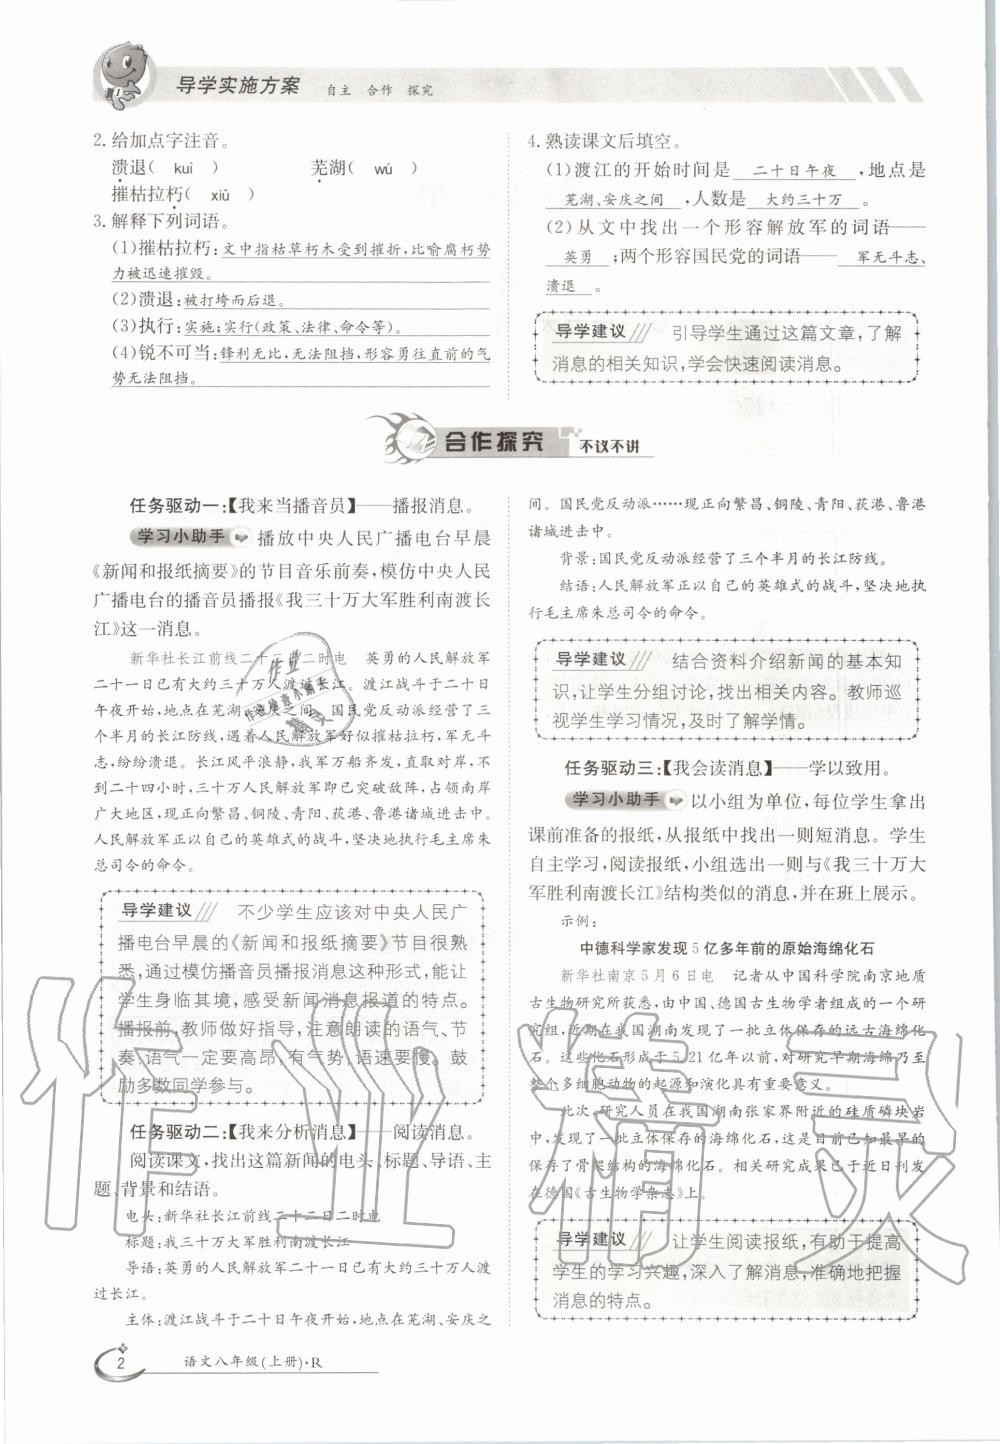 导学实施方案 自主 合作 探究
2. 给加点字注音。
溃退( kuì ) 芜湖( wú )
摧枯拉朽( xiǔ )
3. 解释下列词语。
(1)摧枯拉朽:文中指枯草朽木受到摧折,比喻腐朽势
力被迅速摧毁。
(2)溃退:被打垮而后退。
(3)执行:实施;实行(政策、法律、命令等)。
(4)锐不可当:锋利无比,无法阻挡,形容勇往直前的气
势无法阻挡。
4. 熟读课文后填空。
(1)渡江的开始时间是 二十日午夜 ,地点是
芜湖、安庆之间 ,人数是 大约三十万 。
(2)从文中找出一个形容解放军的词语——
英勇 ;两个形容国民党的词语—— 军无斗志、
溃退 。
导学建议 引导学生通过这篇文章,了解
消息的相关知识,学会快速阅读消息。
合作探究 不议不讲
任务驱动一:【我来当播音员】——播报消息。
学习小助手 播放中央人民广播电台早晨
《新闻和报纸摘要》的节目音乐前奏,模仿中央人民
广播电台的播音员播报《我三十万大军胜利南渡长
江》这一消息。
新华社长江前线二十二日二时电 英勇的人民解放军
二十一日已有大约三十万人渡过长江。渡江战斗于二十日
午夜开始,地点在芜湖、安庆之间。国民党反动派经营了三
个半月的长江防线,遇着人民解放军好似摧枯拉朽,军无斗
志,纷纷溃退。长江风平浪静,我军万船齐发,直取对岸,不
到二十四小时,三十万人民解放军即已突破敌阵,占领南岸
广大地区,现正向繁昌、铜陵、青阳、荻港、鲁港诸城进击中。
人民解放军正以自己的英雄式的战斗,坚决地执行毛主席朱
总司令的命令。
导学建议 不少学生应该对中央人民广
播电台早晨的《新闻和报纸摘要》节目很熟
悉,通过模仿播音员播报消息这种形式,能让
学生身临其境,感受新闻消息报道的特点。
播报前,教师做好指导,注意朗读的语气、节
奏,语气一定要高昂,有气势,语速要慢。鼓
励多数同学参与。
任务驱动二:【我来分析消息】——阅读消息。
阅读课文,找出这篇新闻的电头、标题、导语、主
题、背景和结语。
电头:新华社长江前线二十二日二时电
标题:我三十万大军胜利南渡长江
导语:英勇的人民解放军二十一日已有大约三十万人渡
过长江。
主体:渡江战斗于二十日午夜开始,地点在芜湖、安庆之
间。国民党反动派……现正向繁昌、铜陵、青阳、荻港、鲁港
诸城进击中。
背景:国民党反动派经营了三个半月的长江防线。
结语:人民解放军正以自己的英雄式的战斗,坚决地执
行毛主席朱总司令的命令。
导学建议 结合资料介绍新闻的基本知
识,让学生分组讨论,找出相关内容。教师巡
视学生学习情况,及时了解学情。
任务驱动三:【我会读消息】——学以致用。
学习小助手 以小组为单位,每位学生拿出
课前准备的报纸,从报纸中找出一则短消息。学生
自主学习,阅读报纸,小组选出一则与《我三十万大
军胜利南渡长江》结构类似的消息,并在班上展示。
示例:
中德科学家发现5亿多年前的原始海绵化石
新华社南京5月6日电 记者从中国科学院南京地质
古生物研究所获悉,由中国、德国古生物学者组成的一个研
究组,近期在我国湖南发现了一批立体保存的远古海绵化
石。这些化石形成于5.21亿年以前,对研究早期海绵乃至
整个多细胞动物的起源和演化具有重要意义。
此次,研究人员在我国湖南张家界附近的硅质磷块岩
中,发现了一批立体保存的海绵化石,这是目前已知最早的
保存了骨架结构的海绵化石。相关研究成果已于近日刊发
在德国《古生物学杂志》上。
导学建议 让学生阅读报纸,有助于提高
学生的学习兴趣,深入了解消息,准确地把握
消息的特点。
2 语文八年级(上册)·R
作业精灵